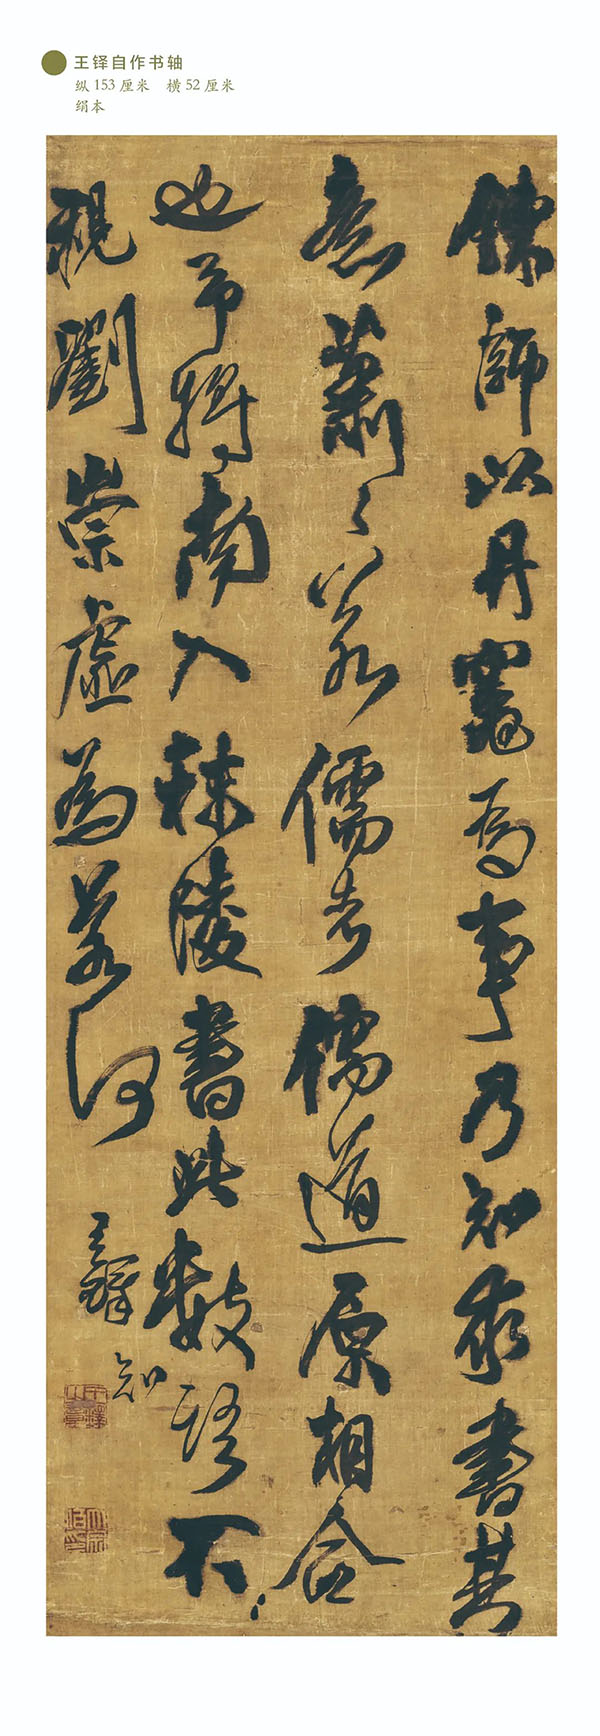 王铎自作书轴
纵153厘米 横52厘米
绢本
鍊師以丹竈為事乃知求書其
意蕭々若儒者儒道原相合
也予將南入秣陵書此數語不
視劉崇虛為若何
王鐸
知